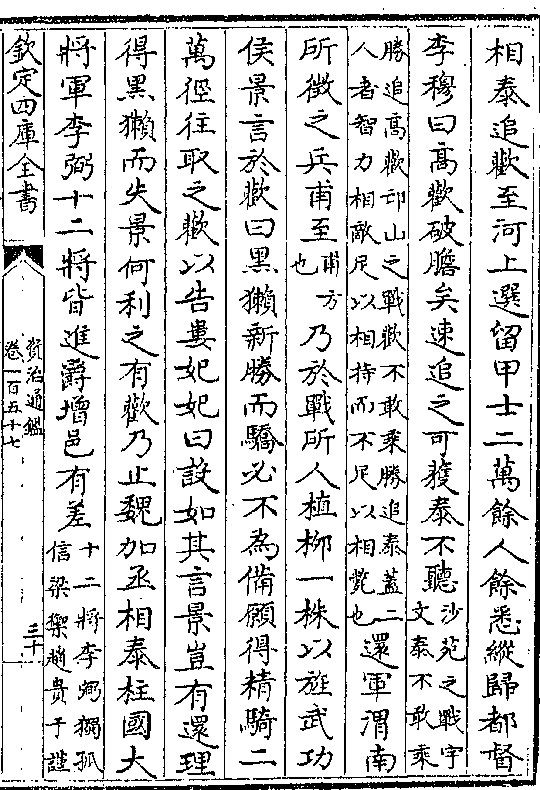 相泰追歡至河上選留甲士二萬餘人餘悉縱歸都督
李穆曰高歡破膽矣速追之可獲泰不聽沙苑之戰宇
文泰不敢乘
勝追高歡邙山之戰歡不敢乘勝追泰蓋二
人者智力相敵足以相持而不足以相斃也還軍渭南
所徵之兵甫至甫方
也乃於戰所人植柳一株以旌武功
侯景言於歡曰黑獺新勝而驕必不為備願得精騎二
萬徑往取之歡以告婁妃妃曰設如其言景豈有還理
得黑獺而失景何利之有歡乃止魏加丞相泰柱國大
將軍李弼十二將皆進爵增邑有差十二將李弼獨孤
信梁禦趙貴于謹
欽定四庫全書
資治通鑑
卷一百五十七
三十